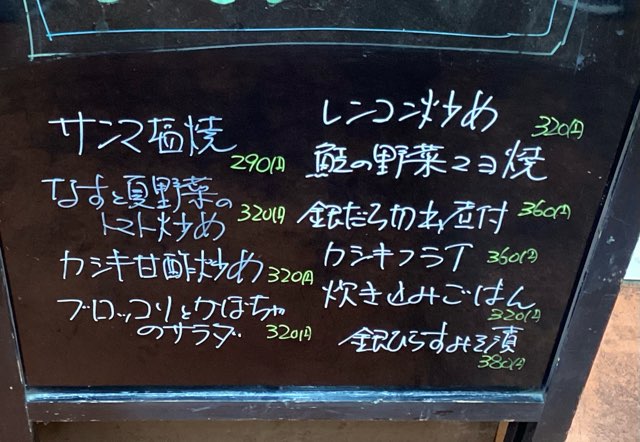 サンマ塩焼
290円
なすと夏野菜の
トマト炒め 320円
カジキ甘酢炒め 320円
ブロッコリとかぼちゃ
のサラダ 320円
レンコン炒め 320円
鮭の野菜マヨ焼
銀だら切 煮付 360円
カジキフライ 360円
炊き込みごはん
320円
銀ひらすみそ漬
380円